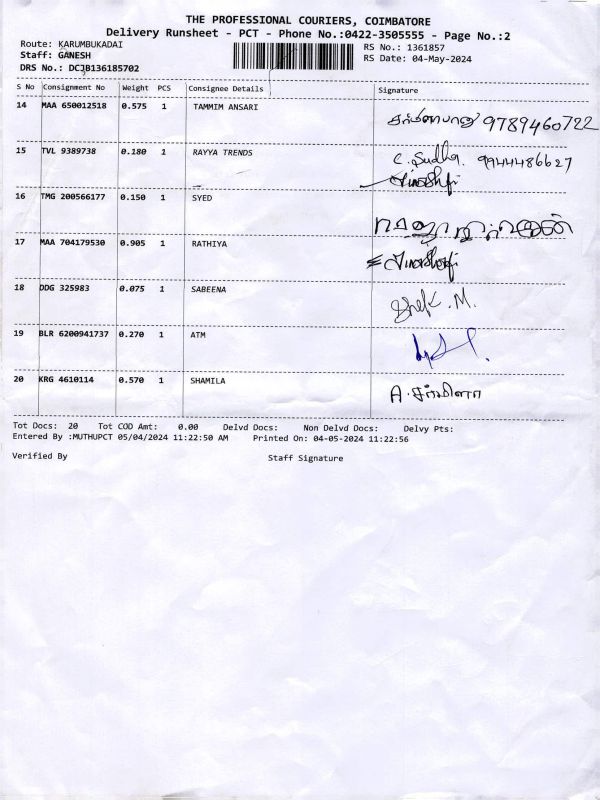 THE PROFESSIONAL COURIERS, COIMBATORE
Delivery Runsheet - PCT - Phone No.:0422-3505555 - Page No.:2
Route: KARUMBUKADAI
RS No.: 1361857
Staff: GANESH
RS Date: 04-May-2024
DRS No.: DCJB136185702
S No Consignment No Weight PCS Consignee Details Signature
14 MAA 650012518 0.575 1 TAMMIM ANSARI 9789460722
15 TVL 9389738 0.180 1 RAYYA TRENDS C. Sudha. 9944486627
16 TMG 200566177 0.150 1 SYED
17 MAA 704179530 0.905 1 RATHIYA
18 DDG 325983 0.075 1 SABEENA
19 BLR 6200941737 0.270 1 ATM
20 KRG 4610114 0.570 1 SHAMILA A. சர்மிளா
Tot Docs: 20 Tot COD Amt: 0.00 Delvd Docs: Non Delvd Docs: Delvy Pts:
Entered By :MUTHUPCT 05/04/2024 11:22:50 AM Printed On: 04-05-2024 11:22:56
Verified By Staff Signature